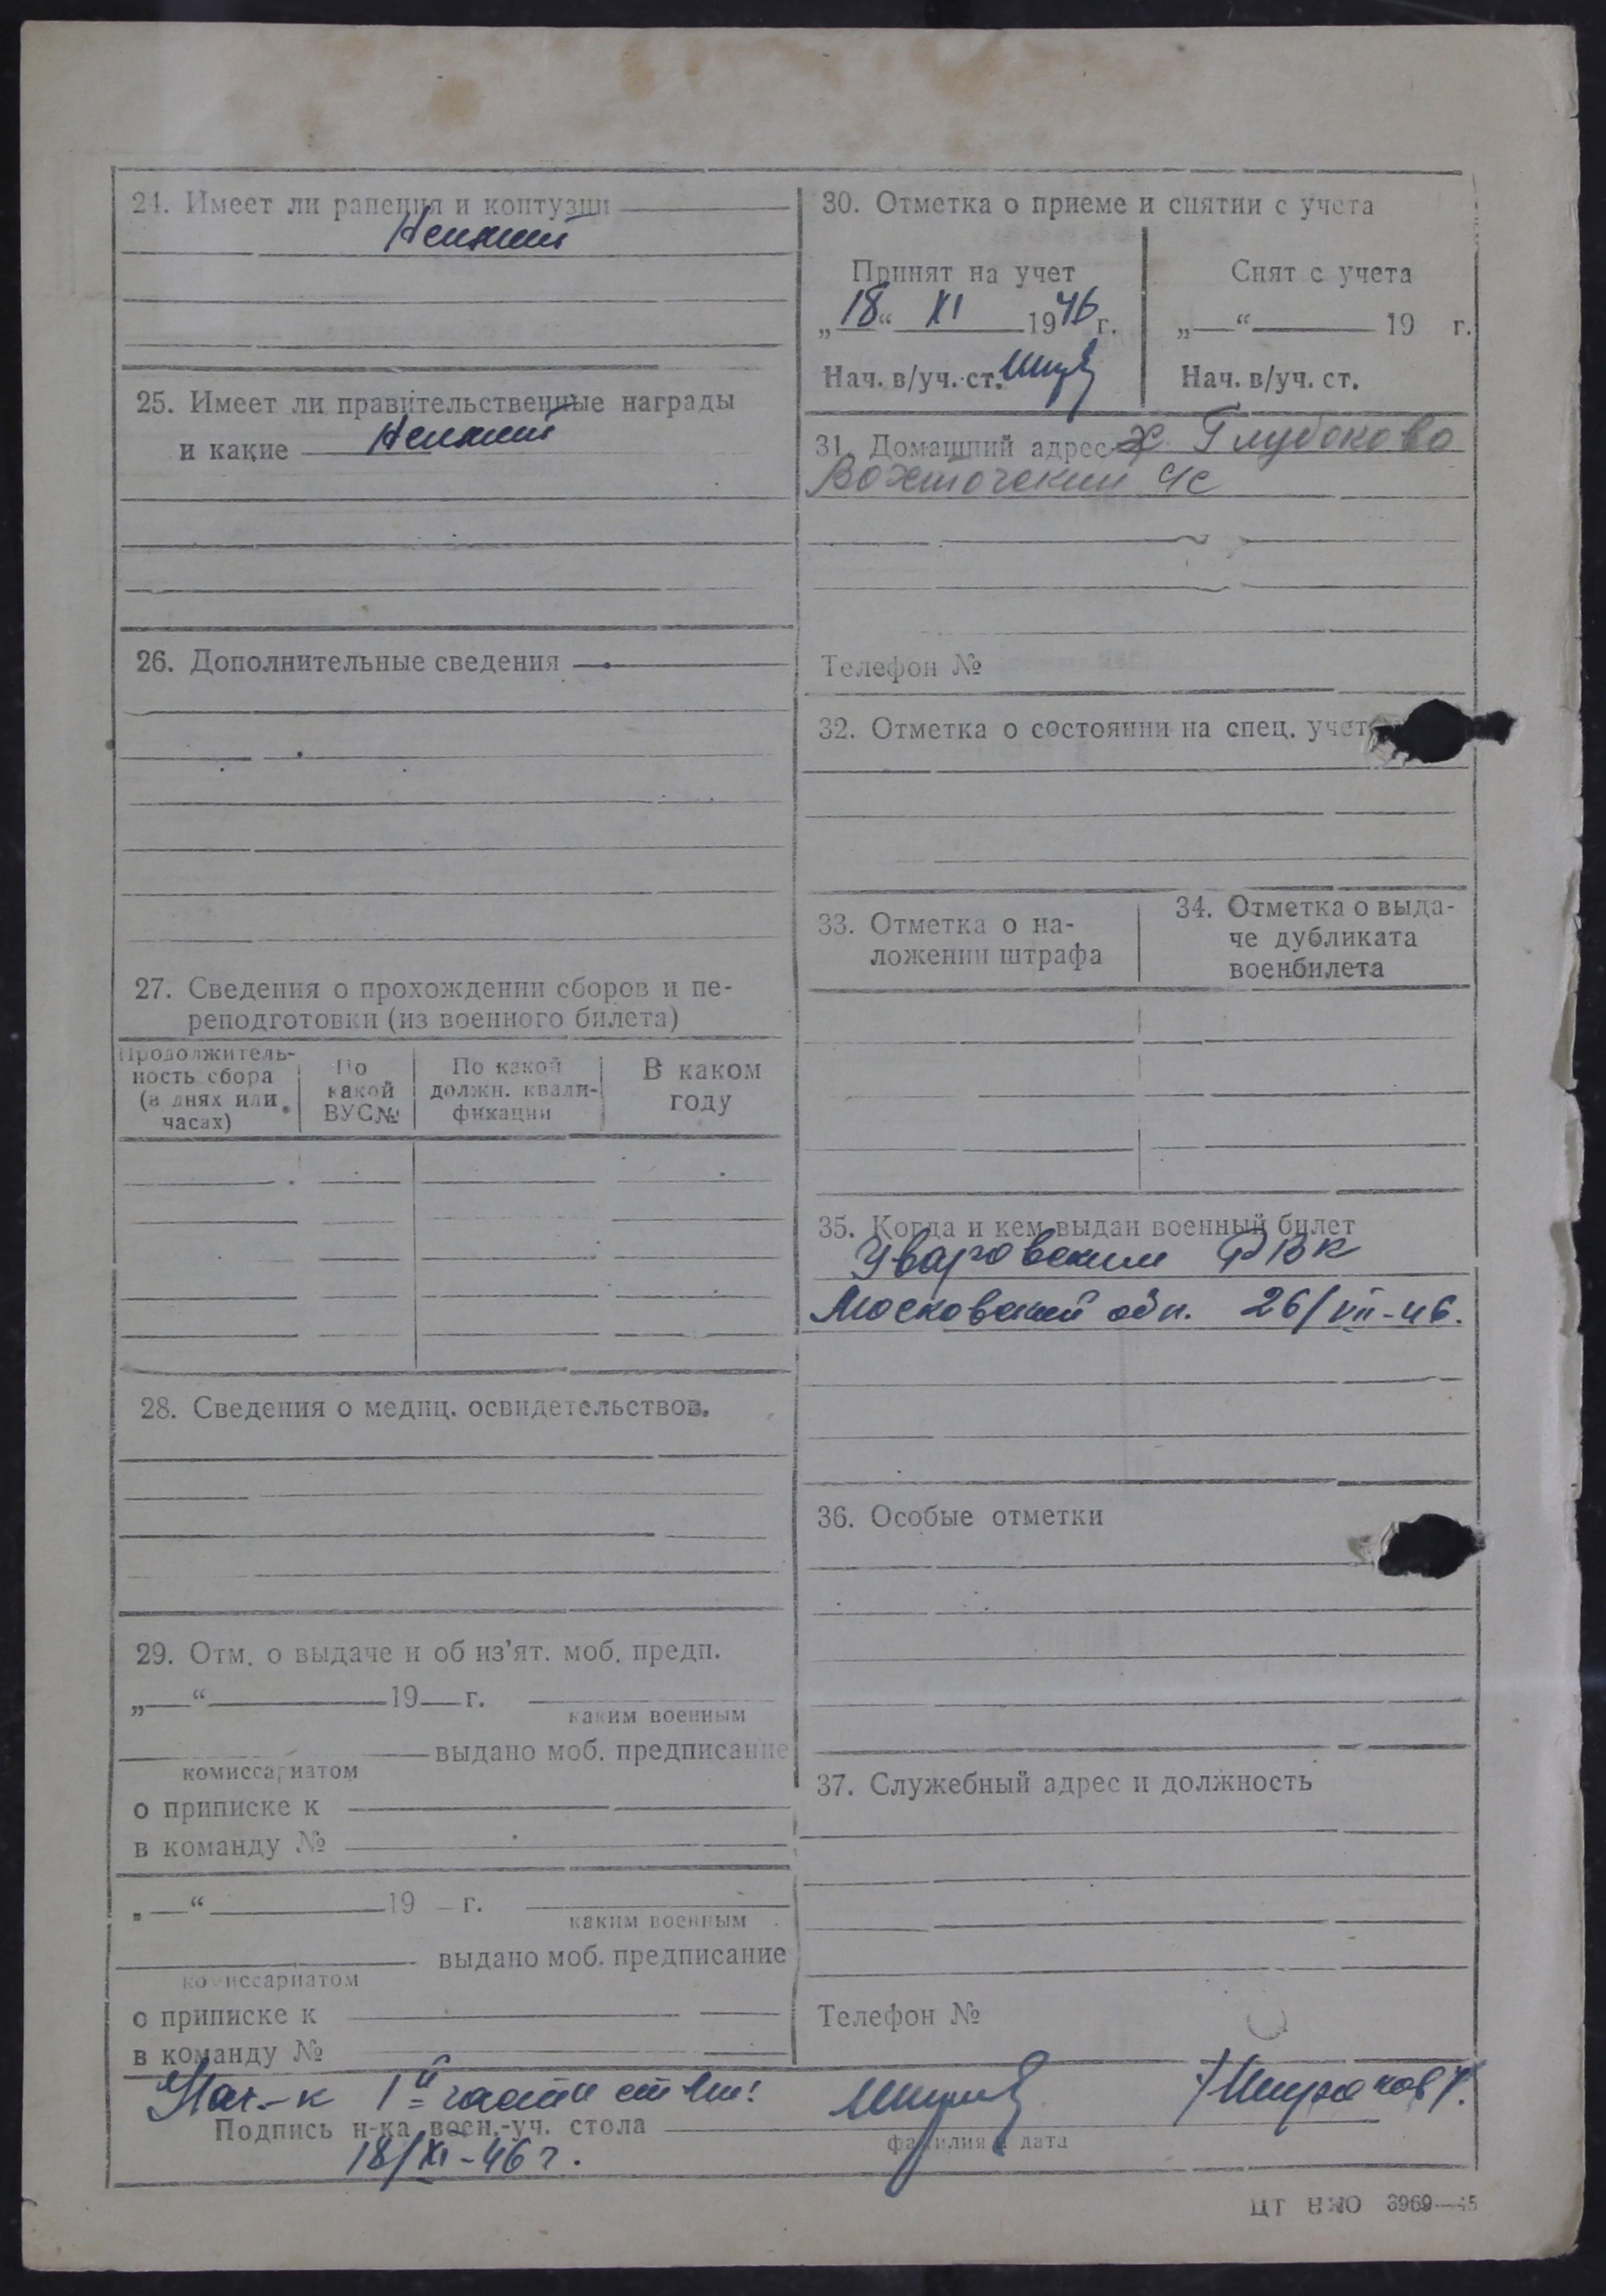 24. Имеет ли ранения и контузии
Не имеет
25. Имеет ли правительственные награды
и какие Не имеет
26. Дополнительные сведения
27. Сведения о прохождении сборов и пе-
реподготовки (из военного билета)
Продолжитель-
ность сбора
(в днях или
часах)
По
какой
ВУС №
По какой
должн. квали-
фикации
В каком
году
28. Сведения о медиц. освидетельствов.
29. Отм. о выдаче и об из’ят. моб. предп.
„ “ 19 г.
каким военным
выдано моб. предписание
комиссариатом
о приписке к
в команду №
„ “ 19 г.
каким военным
выдано моб. предписание
комиссариатом
о приписке к
в команду №
30. Отметка о приеме и снятии с учета
Принят на учет
„18“ XI 1946 г.
Нач. в/уч. ст.
Снят с учета
„ “ 19 г.
Нач. в/уч. ст.
31. Домашний адрес Глубоково
с/с
Телефон №
32. Отметка о состоянии на спец. учет
33. Отметка о на-
ложении штрафа
34. Отметка о выда-
че дубликата
военбилета
35. Когда и кем выдан военный билет
Уваровским РВК
Московской обл. 26/VII-46.
36. Особые отметки
37. Служебный адрес и должность
Телефон №
Нач-к 1й части
Подпись н-ка воен.-уч. стола
фамилия и дата
18/XI-46 г.
ЦТ НКО 3969—45